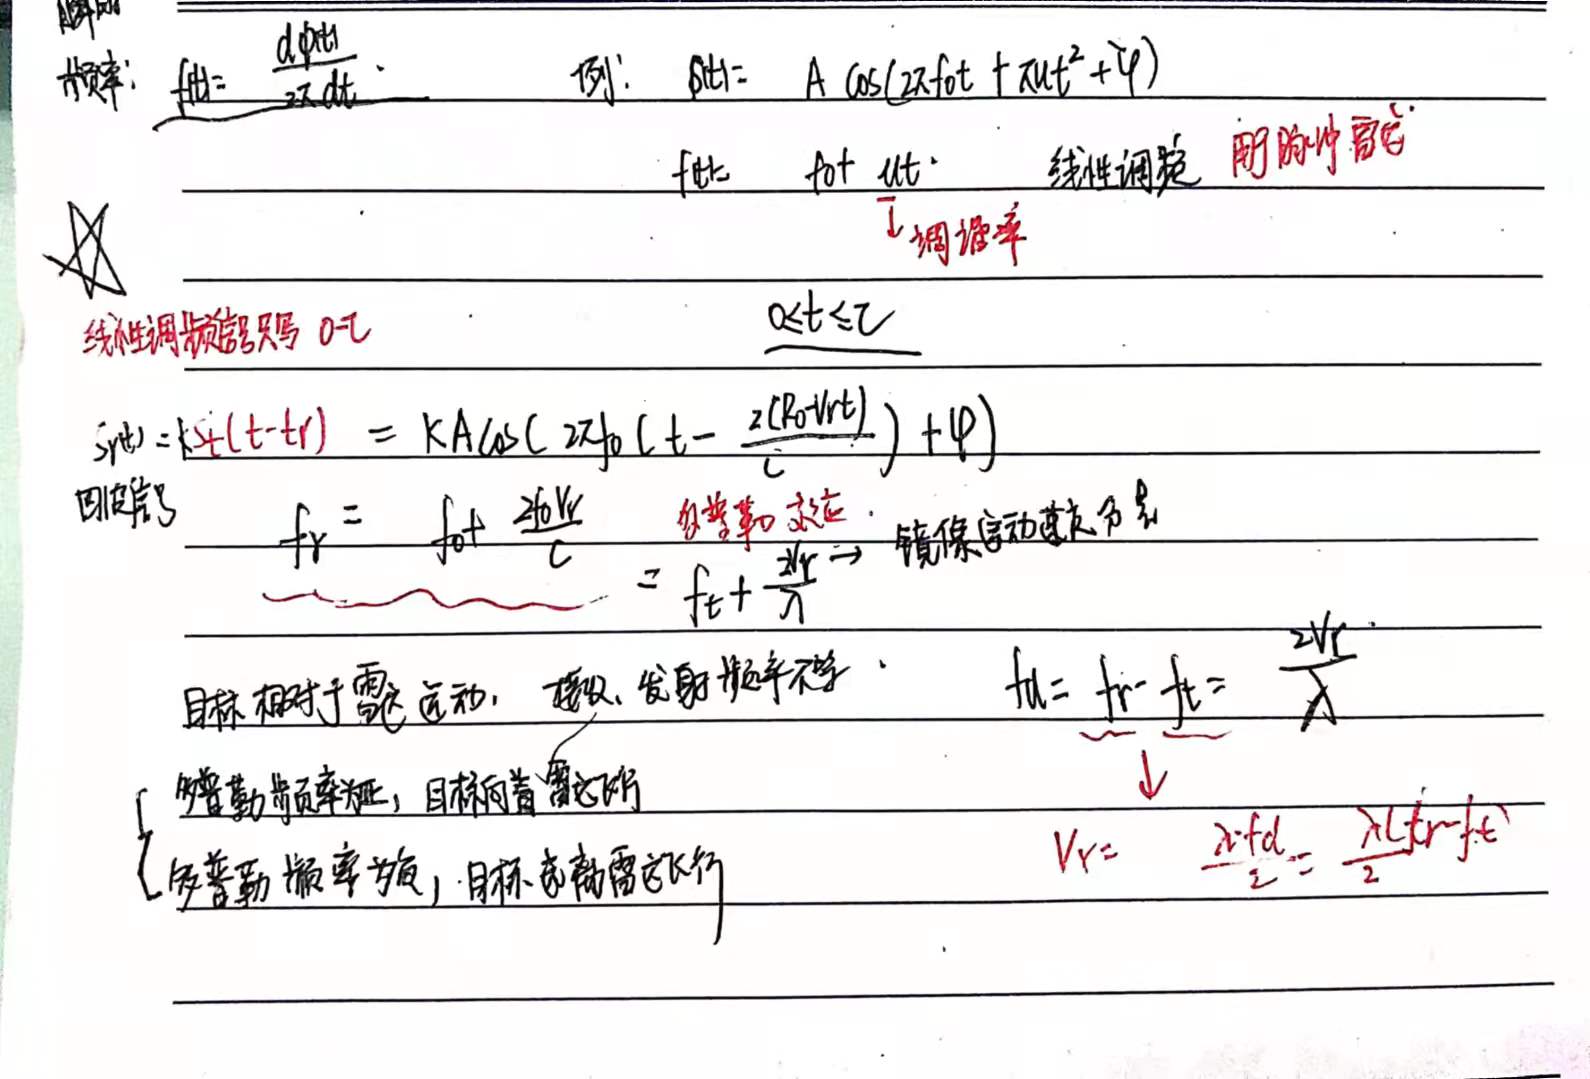 瞬时
频率: f(t)= dφ(t)/2π dt. 例: S(t)= A cos(2πf₀t + πμt² + φ)
f(t)= f₀+ μt. 线性调频 用于脉冲雷达
↓调谐率
线性调频信号只写 0-τ 0≤t≤τ
Sr(t) = kSt(t-tr) = KA cos( 2πf₀ ( t - 2(R₀-Vrt)/C ) + φ)
回波信号
fr = f₀+ 2f₀Vr/C 多普勒效应.
= ft + 2Vr/λ → 镜像运动速度为
目标相对于雷达运动, 接收、发射频率不等. fd = fr - ft = 2Vr/λ
多普勒频率为正, 目标向着雷达飞行
↓
Vr = λ·fd/2 = λ(fr-ft)/2
多普勒频率为负, 目标远离雷达飞行